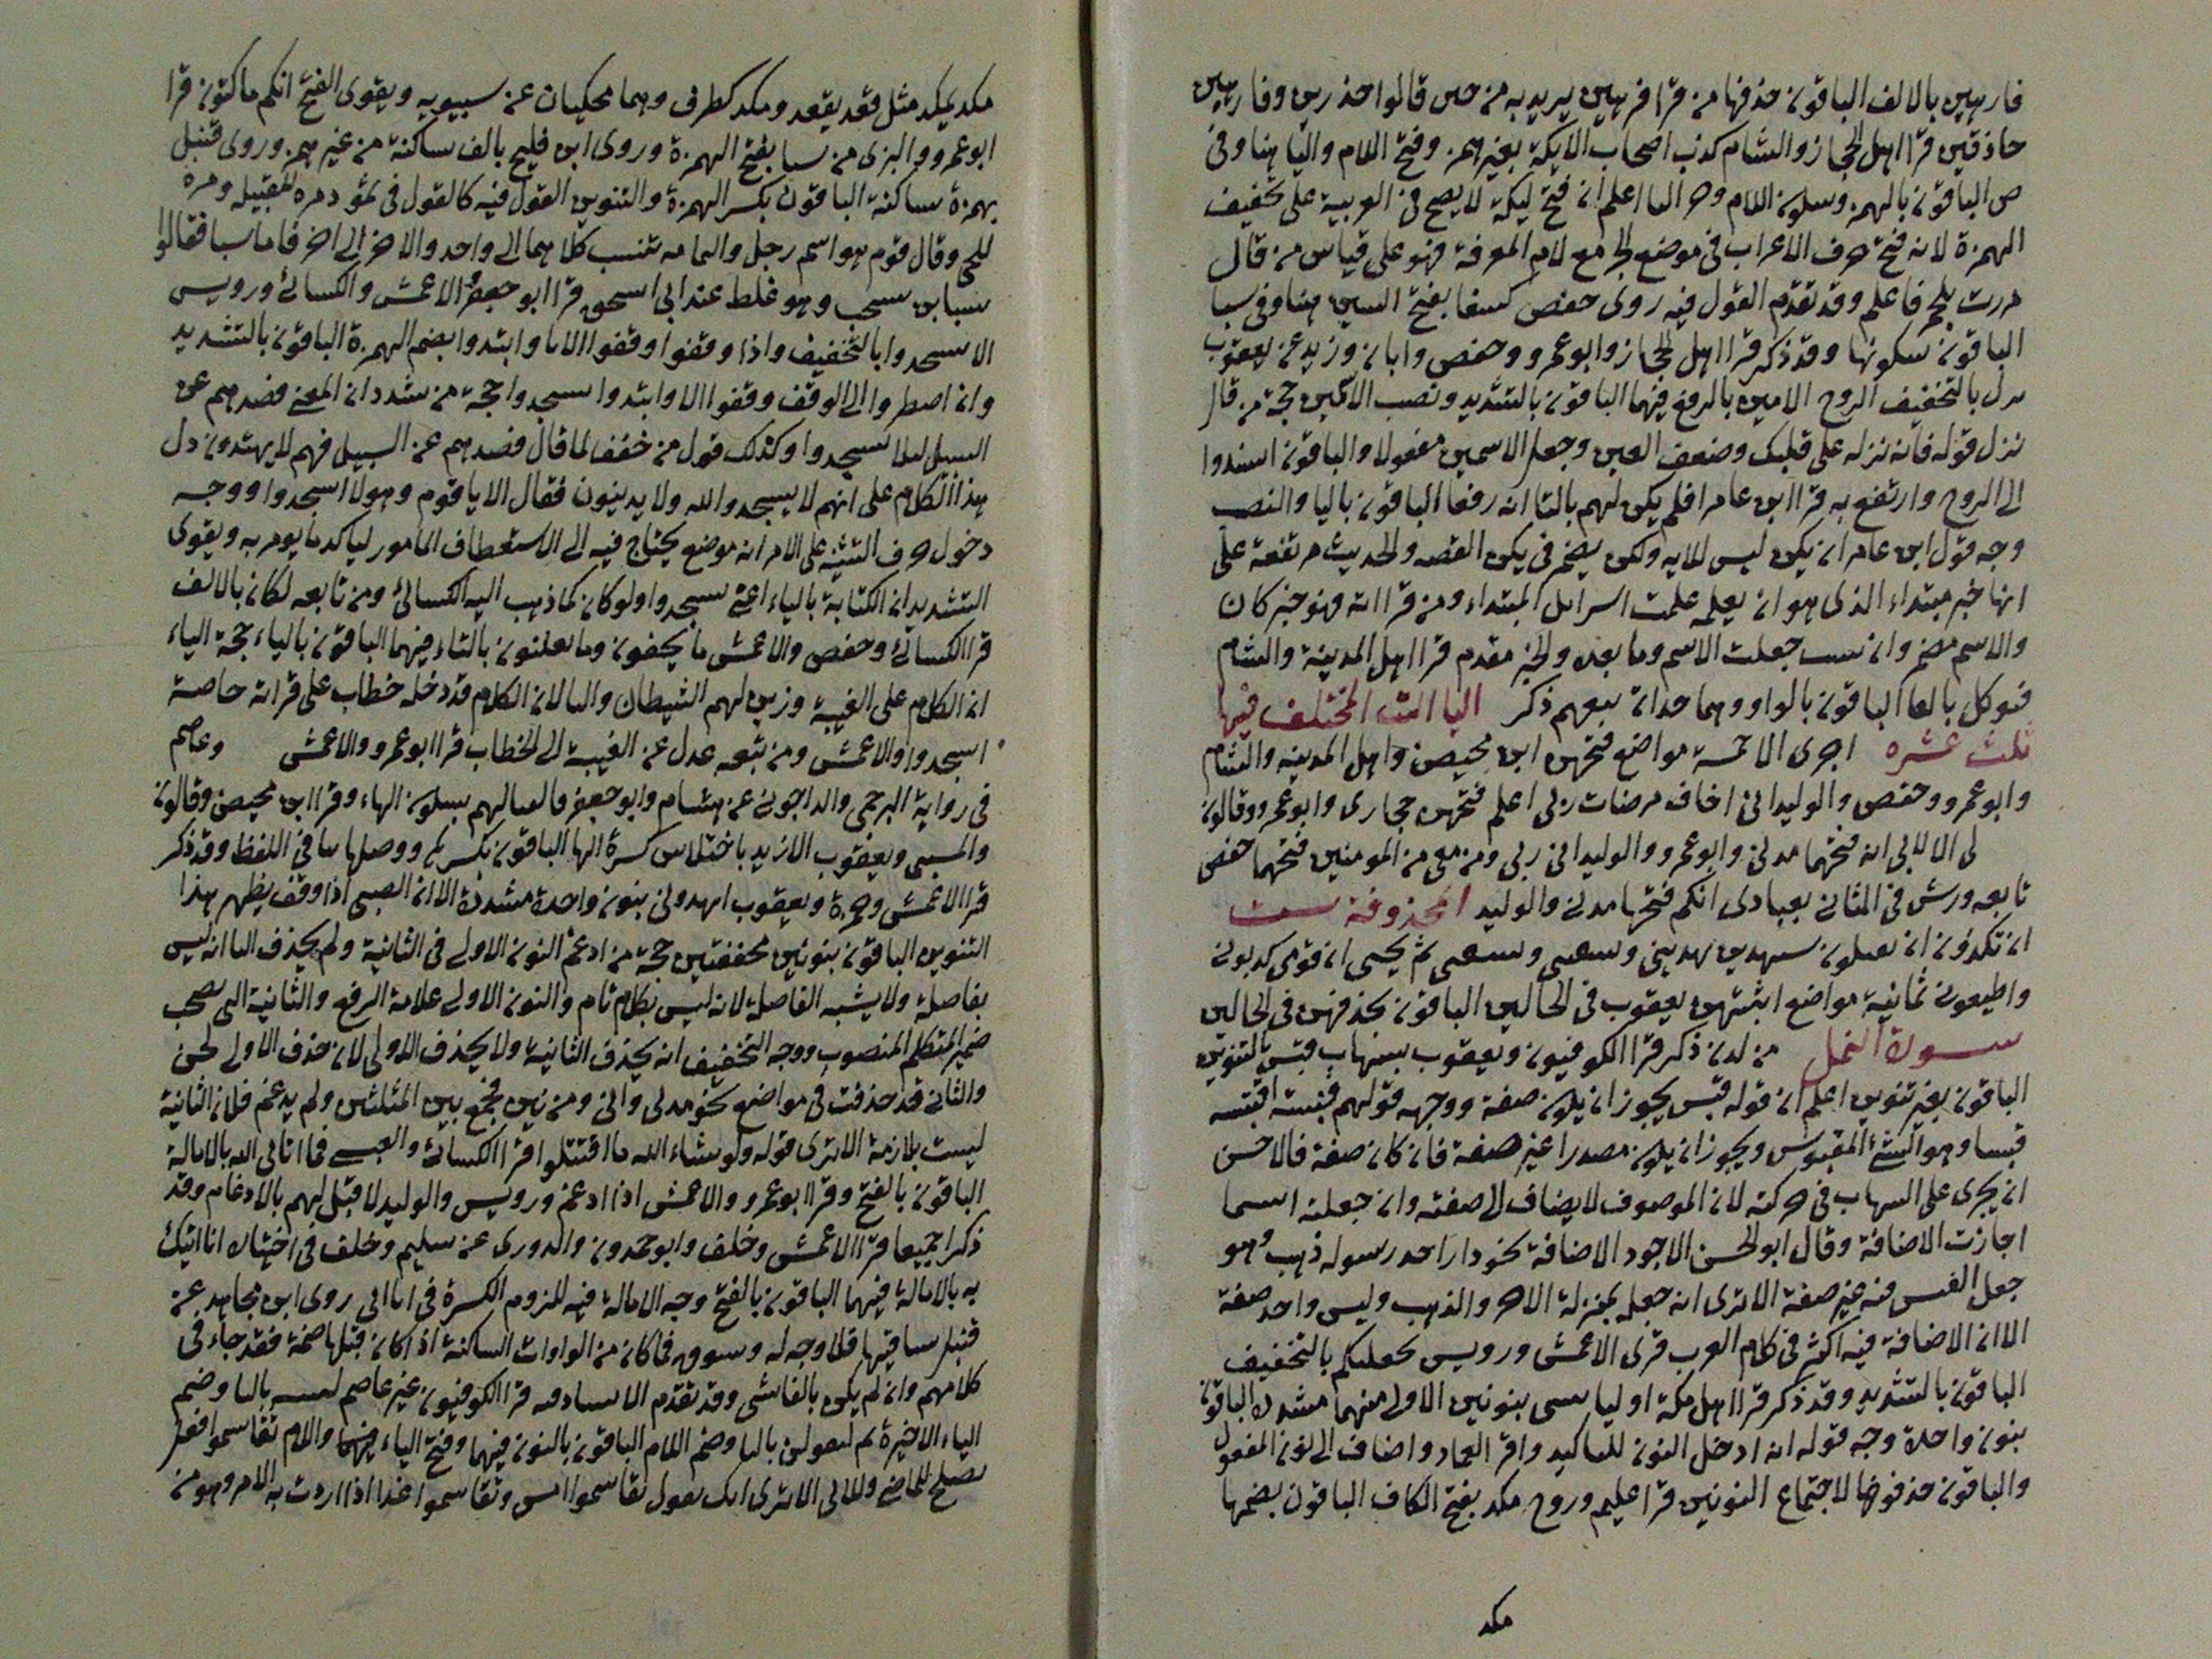 فارهين بالالف الباقون حذفها من قرا فرهين يريد به من حين قالوا حذرين وفارهين
حاذقين قرا اهل الحجاز والشام كذب اصحاب الايكة بغير همز وفتح اللام والتا هنا وفى
ص الباقون بالهمز وسكون اللام وجر التا اعلم ان فتح ليكة لا يصح فى العربية على تخفيف
الهمزة لانه فتح حرف الاعراب فى موضع الجر مع لام المعرفة فهو على قياس من قال
مررت بلحمر فاعلم وقد تقدم القول فيه روى حفص كسفا بفتح السين هنا وفى سبا
الباقون سكونها وقد ذكر قرا اهل الحجاز وابو عمرو وحفص وابان وزيد عن يعقوب
نزل بالتخفيف الروح الامين بالرفع فيهما الباقون بالتشديد ونصب الاسمين حجة من قال
نزل قوله فانه نزله على قلبك وضعف العين وجعل الاسمين مفعولا والباقون اسندوا
الى الروح وارتفع به قرا ابن عامر افلم يكن لهم بالتا اية رفعا الباقون باليا والنصب
وجه قول ابن عامر ان يكن ليس للايه ولكن يضمر فى يكن القصه والحديث مرتفعة على
انها خبر مبتداء الذى هو ان يعلمه علمت اسرايل المبتداء ومن قرا اية فهو خبر كان
والاسم مضمر وان نسب جعلت الاسم وما بعده والخبر مقدم قرا اهل المدينة والشام
فتوكل بالفا الباقون بالواو وهما حدان يتبعهم ذكر الياات المختلف فيها
ثلث عشره اجرى الا خمسة مواضع فتحهن ابن محيصن واهل المدينه والشام
وابو عمرو وحفص والوليد انى اخاف موضعان ربى اعلم فتحهن حجازى وابو عمرو وقالون
لى الا لابى انه فتحهما مدنى وابو عمرو والوليد انى ربى ومن معى من المومنين فتحهما حفص
تابعه ورش فى الثانى بعبادى انكم فتحها مدنى والوليد المحذوفة ست
ان يكذبون ان يقتلون سيهدين يهدينى ويسقين ويشفين ثم يحيين ان قومى كذبون
واطيعون ثمانية مواضع اثبتهن يعقوب فى الحالين الباقون بحذفهن فى الحالين
سورة النمل من لدن ذكر قرا الكوفيون ويعقوب بشهاب قبس بالتنوين
الباقون بغير تنوين اعلم ان قوله قبس يجوز ان يكون صفة ووجهه قولهم قبسته اقبسه
قبسا وهو الشئ المقبوس ويجوز ان يكون مصدرا غير صفة فان كان صفة فالاحسن
ان يجرى على الشهاب فى حركته لان الموصوف لا يضاف الى صفته وان جعلته اسما
اجازت الاضافة وقال ابو الحسن الاجود الاضافة نحو دار اجر وسوار ذهب وهو
جعل القبس فيه غير صفة الا ترى انه جعله بمنزلة الاجر والذهب وليس واحد صفة
الا ان الاضافة فيه اكثر فى كلام العرب قرى الاعمش ورويس يحطمنكم بالتخفيف
الباقون بالتشديد وقد ذكر قرا اهل مكة او لياتيننى بنونين الاولى منهما مشدده الباقون
بنون واحدة وجه قوله انه ادخل النون للتاكيد واقر العماد واضاف الى نون المفعول
والباقون حذفوها لاجتماع النونين قرا عاصم وروح مكث بفتح الكاف الباقون بضمها
مكد
مكد يمكد مثل قعد يقعد ومكد كظرف وهما محكيان عن سيبويه ويقوى الفتح انكم ماكثون قرا
ابو عمرو والبزى من سبا بفتح الهمزة وروى ابن فليح بالف ساكنة من غير همز وروى قنبل
بهمزة ساكنة الباقون بكسر الهمزة والتنوين القول فيه كالقول فى ثمود مره للقبيله ومره
للحى وقال قوم هو اسم رجل واليمامه تنسب كلاهما الى واحد والاخر الى اخر فاما سبا فقالوا
سبا بن يشجب وهو غلط عند ابى اسحق قرا ابو جعفر والاعمش والكسائى ورويس
الا يسجدوا بالتخفيف واذا وقفوا وقفوا الا يا وابتدوا بضم الهمزة الباقون بالتشديد
وان اضطروا الى الوقف وقفوا الا وابتدوا يسجدوا حجة من شدد ان المعنى فصدهم عن
السبيل لئلا يسجدوا وكذلك قول من خفف لما قال فصدهم عن السبيل فهم لا يهتدون دل
هذا الكلام على انهم لا يسجدوا لله ولا يدينون فقال الا يا قوم وهولا اسجدوا ووجه
دخول حرف التنبيه على الامر انه موضع يحتاج فيه الى الاستعطاف المامور لياكد ما يومر به ويقوى
التشديد ان الكتابة بالياء اعنى يسجدوا ولو كان كما ذهب اليه الكسائى ومن تابعه لكان بالالف
قرا الكسائى وحفص والاعمش ما يخفون وما يعلنون بالتاء فيهما الباقون بالياء حجة الياء
ان الكلام على الغيبة وزين لهم الشيطان والتا لان الكلام قد دخله خطاب على قراته خاصة
اسجدوا والاعمش ومن تبعه عدل عن الغيبة الى الخطاب قرا ابو عمرو والاعمش وعاصم
فى رواية البرجمى والداجونى عن هشام وابو جعفر فالقه اليهم بسكون الهاء وقرا ابن محيصن وقالون
والمسيبى ويعقوب الا زيد باختلاس كسرة الها الباقون بكسرها ووصلها بيا فى اللفظ وقد ذكر
قرا الاعمش وحمزة ويعقوب اتمدونى بنون واحدة مشددة الا ان العبسى اذا وقف يظهر بهذا
التنوين الباقون بنونين مخففتين حجة من ادغم النون الاولى فى الثانية ولم يحذف اليا انه ليس
بفاصلة ولا يشبه الفاصلة لانه ليس بكلام تام والنون الاولى علامة الرفع والثانية التى تصحب
ضمير المتكلم المنصوب ووجه التخفيف انه يحذف الثانية ولا يحذف الاولى لان حذف الاولى لحن
والثانى قد حذفت فى مواضع نحو قدنى وانى ومن بين فجمع بين المثلين ولم يدغم فلان الثانية
ليست بلازمة الا ترى قوله ولو شاء الله ما اقتتلوا قرا الكسائى والعبسى فما اتانى الله بالامالة
الباقون بالفتح وقرا ابو عمرو والاعمش اذا ادغم ورويس والوليد لا قبل لهم بالادغام وقد
ذكرا جميعا قرا الاعمش وخلف وابو حمدون والدورى عن سليم وخلف فى اختياره انا اتيك
به بالامالة فيهما الباقون بالفتح وجه الامالة فيه للزوم الكسرة فى اتى روى ابن مجاهد عن
قنبل ساقيها فلا وجه له وسوق فما كان من الواوات الساكنة اذا كان قبلها ضمة فقد جاء فى
كلامهم وان لم يكن بالفاشى وقد تقدم الاسناد فيه قرا الكوفيون غير عاصم لتبيتنه بالتا وضم
الياء الاخيرة ثم لتقولن بالتا وضم اللام الباقون بالنون فيهما وفتح الياء واللام تقاسموا فعل
يصلح للماضى وللاتى الا ترى انك تقول تقاسموا امس وتقاسموا غدا اذا اردت به الامر وهو من